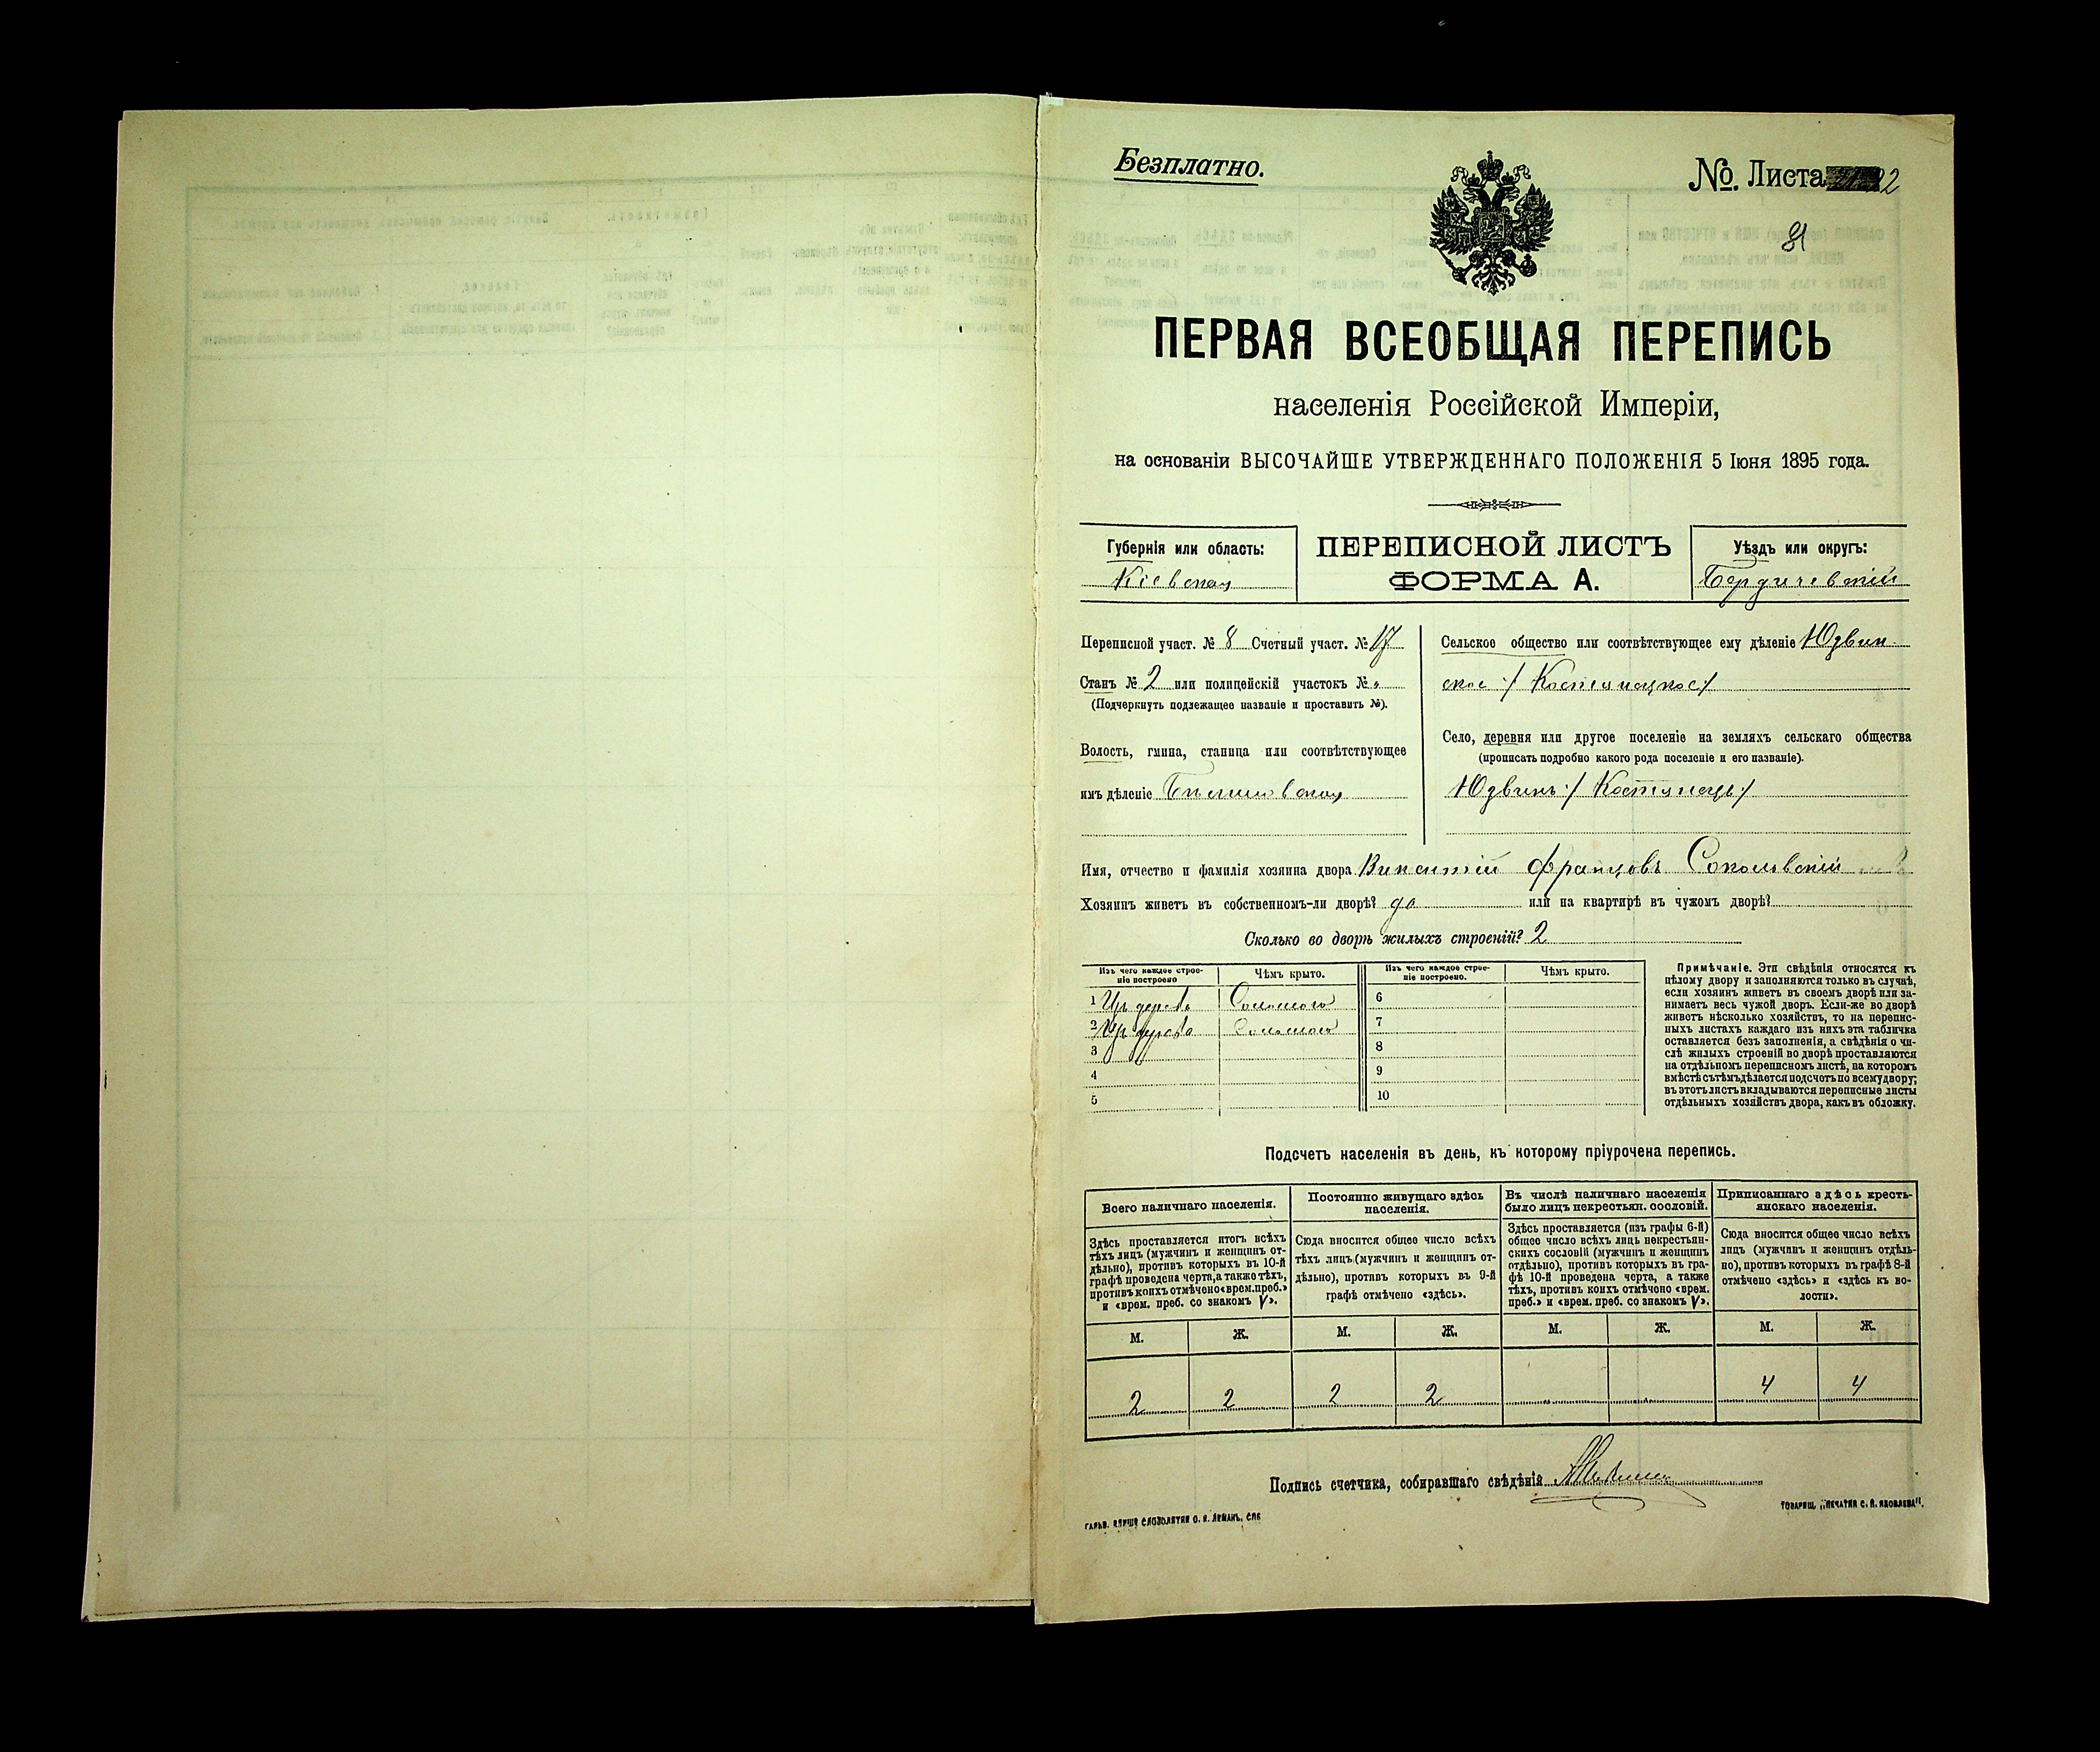 Безплатно.
№. Листа 22
81
ПЕРВАЯ ВСЕОБЩАЯ ПЕРЕПИСЬ
населенія Россійской Имперіи,
на основаніи ВЫСОЧАЙШЕ УТВЕРЖДЕННАГО ПОЛОЖЕНІЯ 5 Іюня 1895 года.
Губернія или область:
Кіевская
ПЕРЕПИСНОЙ ЛИСТЪ
ФОРМА А.
Уѣздъ или округъ:
Бердичевскій
Переписной участ. № 8 Счетный участ. № 17
Станъ № 2 или полицейскій участокъ № „
(Подчеркнуть подлежащее названіе и проставить №).
Волость, гмина, станица или соотвѣтствующее
имъ дѣленіе
Сельское общество или соотвѣтствующее ему дѣленіе Юдвин-
ское /
Село, деревня или другое поселеніе на земляхъ сельскаго общества
(прописать подробно какого рода поселеніе и его названіе).
Юдвинъ /
Имя, отчество и фамилія хозяина двора Викентій Францовъ Соколовскій
Хозяинъ живетъ въ собственномъ-ли дворѣ? да или на квартирѣ въ чужомъ дворѣ?
Сколько во дворѣ жилыхъ строеній? 2
Изъ чего каждое строе-
ніе построено
Чѣмъ крыто.
1 Изъ дерева Соломою
2 Изъ дерева Соломою
3
4
5
Изъ чего каждое строе-
ніе построено.
Чѣмъ крыто.
6
7
8
9
10
Примѣчаніе. Эти свѣдѣнія относятся къ
цѣлому двору и заполняются только въ случаѣ,
если хозяинъ живетъ въ своемъ дворѣ или за-
нимаетъ весь чужой дворъ. Если-же во дворѣ
живетъ нѣсколько хозяйствъ, то на перепис-
ныхъ листахъ каждаго изъ нихъ эта табличка
оставляется безъ заполненія, а свѣдѣнія о чи-
слѣ жилыхъ строеній во дворѣ проставляются
на отдѣльномъ переписномъ листѣ, на которомъ
вмѣстѣ съ тѣмъ дѣлается подсчетъ по всему двору;
въ этотъ листъ вкладываются переписные листы
отдѣльныхъ хозяйствъ двора, какъ въ обложку.
Подсчетъ населенія въ день, къ которому пріурочена перепись.
Всего наличнаго населенія.
Здѣсь проставляется итогъ всѣхъ
тѣхъ лицъ (мужчинъ и женщинъ от-
дѣльно), противъ которыхъ въ 10-й
графѣ проведена черта, а также тѣхъ,
противъ коихъ отмѣчено «врем. преб.»
и «врем. преб. со знакомъ V».
Постоянно живущаго здѣсь
населенія.
Сюда вносится общее число всѣхъ
тѣхъ лицъ (мужчинъ и женщинъ от-
дѣльно), противъ которыхъ въ 9-й
графѣ отмѣчено «здѣсь».
Въ числѣ наличнаго населенія
было лицъ некрестьян. сословій.
Здѣсь проставляется (изъ графы 6-й)
общее число всѣхъ лицъ некрестьян-
скихъ сословій (мужчинъ и женщинъ
отдѣльно), противъ которыхъ въ гра-
фѣ 10-й проведена черта, а также
тѣхъ, противъ коихъ отмѣчено «врем.
преб.» и «врем. преб. со знакомъ V».
Приписаннаго здѣсь кресть-
янскаго населенія.
Сюда вносится общее число всѣхъ
лицъ (мужчинъ и женщинъ отдѣль-
но), противъ которыхъ въ графѣ 8-й
отмѣчено «здѣсь» и «здѣсь къ во-
лости».
М. Ж. М. Ж. М. Ж. М. Ж.
2 2 2 2 4 4
Подпись счетчика, собиравшаго свѣдѣнія
ГАЛЬВ. КЛИШЕ СЛОВОЛИТНИ О. И. ЛЕМАНЪ, СПБ
ТОВАРИЩ. „ПЕЧАТНЯ С. П. ЯКОВЛЕВА".